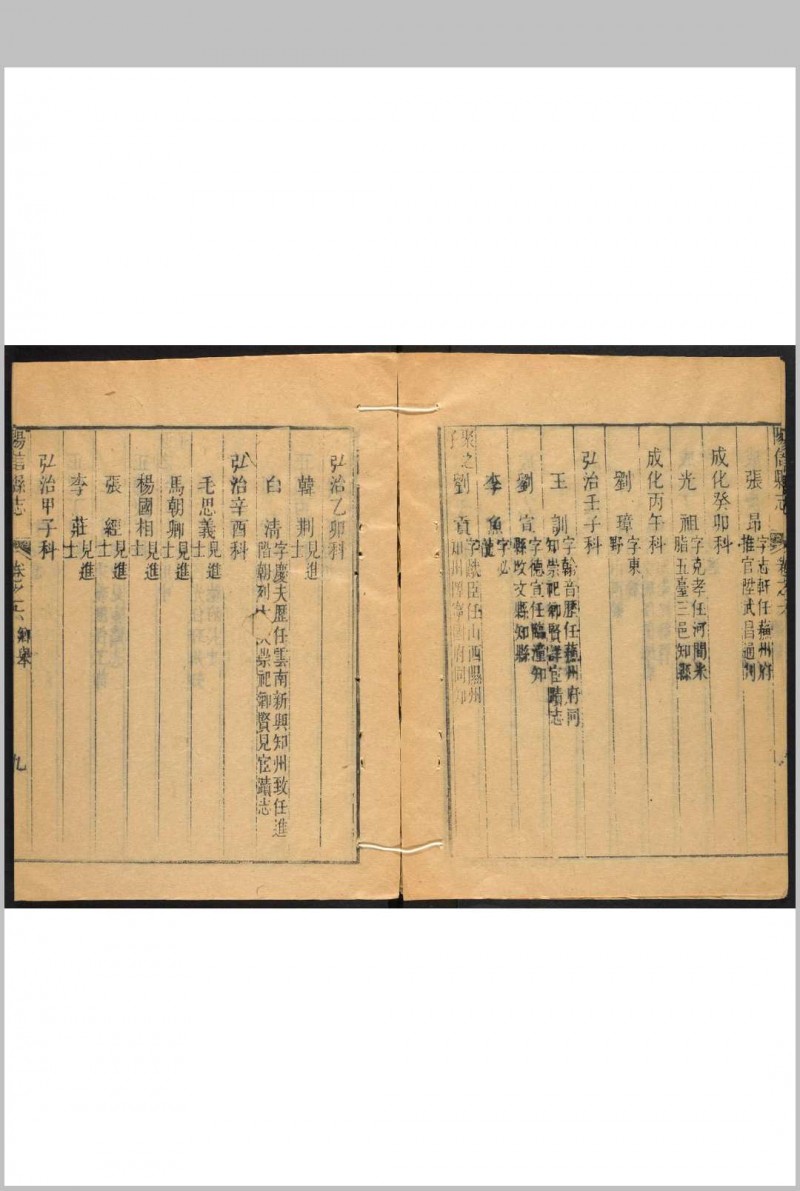 陽信縣志 卷之六
張昂 字古軒任蘇州府推官陞武昌通判
成化癸卯科
光祖 字克孝任河間米脂五臺三邑知縣
成化丙午科
劉璋 字東野
弘治壬子科
王訓 字翰音歷任蘇州府同知崇祀鄉賢詳宦蹟志
劉宣 字德宣任臨潼知縣改文縣知縣
李魚 字必
聚之子 劉貢 字 臣任山西隰州知州陞 府同知
弘治乙卯科
韓荆 見進士
白清 字慶夫歷任雲南新興知州致任進階朝列 崇祀鄉賢見宦蹟志
弘治辛酉科
毛思義 見進士
馬朝卿 見進士
楊國相 見進士
張經 見進士
李莊 見進士
弘治甲子科
陽信縣志 卷之六 鄉舉 九